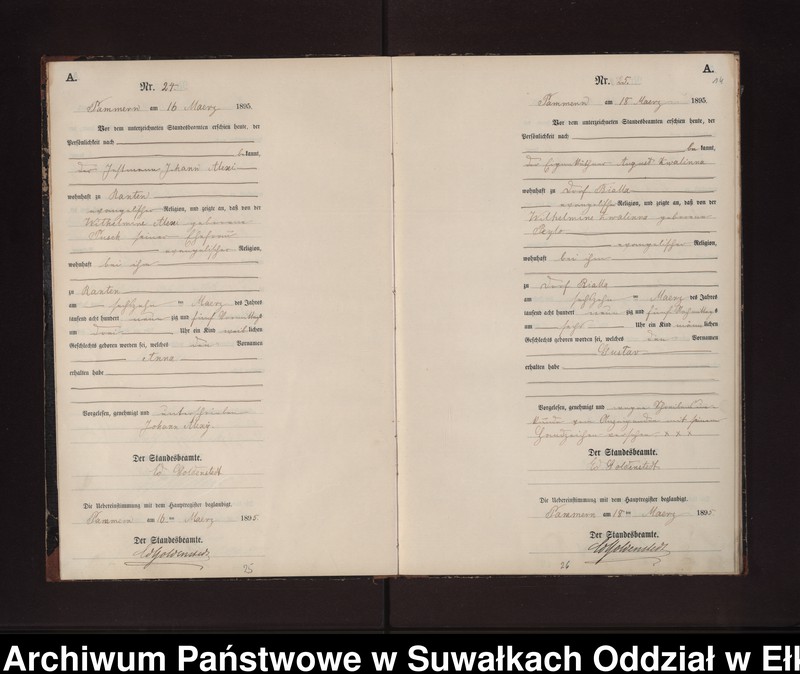 A.
Nr. 24
Pammern am 16 Maerz 1895.
Vor dem unterzeichneten Standesbeamten erschien heute, der
Persönlichkeit nach
bekannt,
der Johann Alexi
wohnhaft zu Ranten
evangelischer Religion, und zeigte an, daß von der
Wilhelmine Alexi geborene
seiner Ehefrau
evangelischer Religion,
wohnhaft bei ihm
zu Ranten
am sechzehn ten Maerz des Jahres
tausend acht hundert neunzig und fünf Vormittags
um drei Uhr ein Kind weiblichen
Geschlechts geboren worden sei, welches den Vornamen
Anna
erhalten habe
Vorgelesen, genehmigt und unterschrieben
Johann
Der Standesbeamte.
Ed Goldenstedt
Die Uebereinstimmung mit dem Hauptregister beglaubigt.
Pammern am 16 ten Maerz 1895
Der Standesbeamte.
Ed Goldenstedt
25
A.
Nr. 25.
Pammern am 18 Maerz 1895.
Vor dem unterzeichneten Standesbeamten erschien heute, der
Persönlichkeit nach
bekannt,
der August
wohnhaft zu Dorf Bialla
evangelischer Religion, und zeigte an, daß von der
Wilhelmine geborene
evangelischer Religion,
wohnhaft bei ihm
zu Dorf Bialla
am sechzehn ten Maerz des Jahres
tausend acht hundert neunzig und fünf Nachmittags
um sechs Uhr ein Kind männlichen
Geschlechts geboren worden sei, welches den Vornamen
Gustav
erhalten habe
Vorgelesen, genehmigt und wegen
vom Anzeigenden mit seinem
Handzeichen versehen x x x
Der Standesbeamte.
Ed Goldenstedt
Die Uebereinstimmung mit dem Hauptregister beglaubigt.
Pammern am 18 ten Maerz 1895
Der Standesbeamte.
Ed Goldenstedt
26
Archiwum Państwowe w Suwałkach Oddział w Ełk